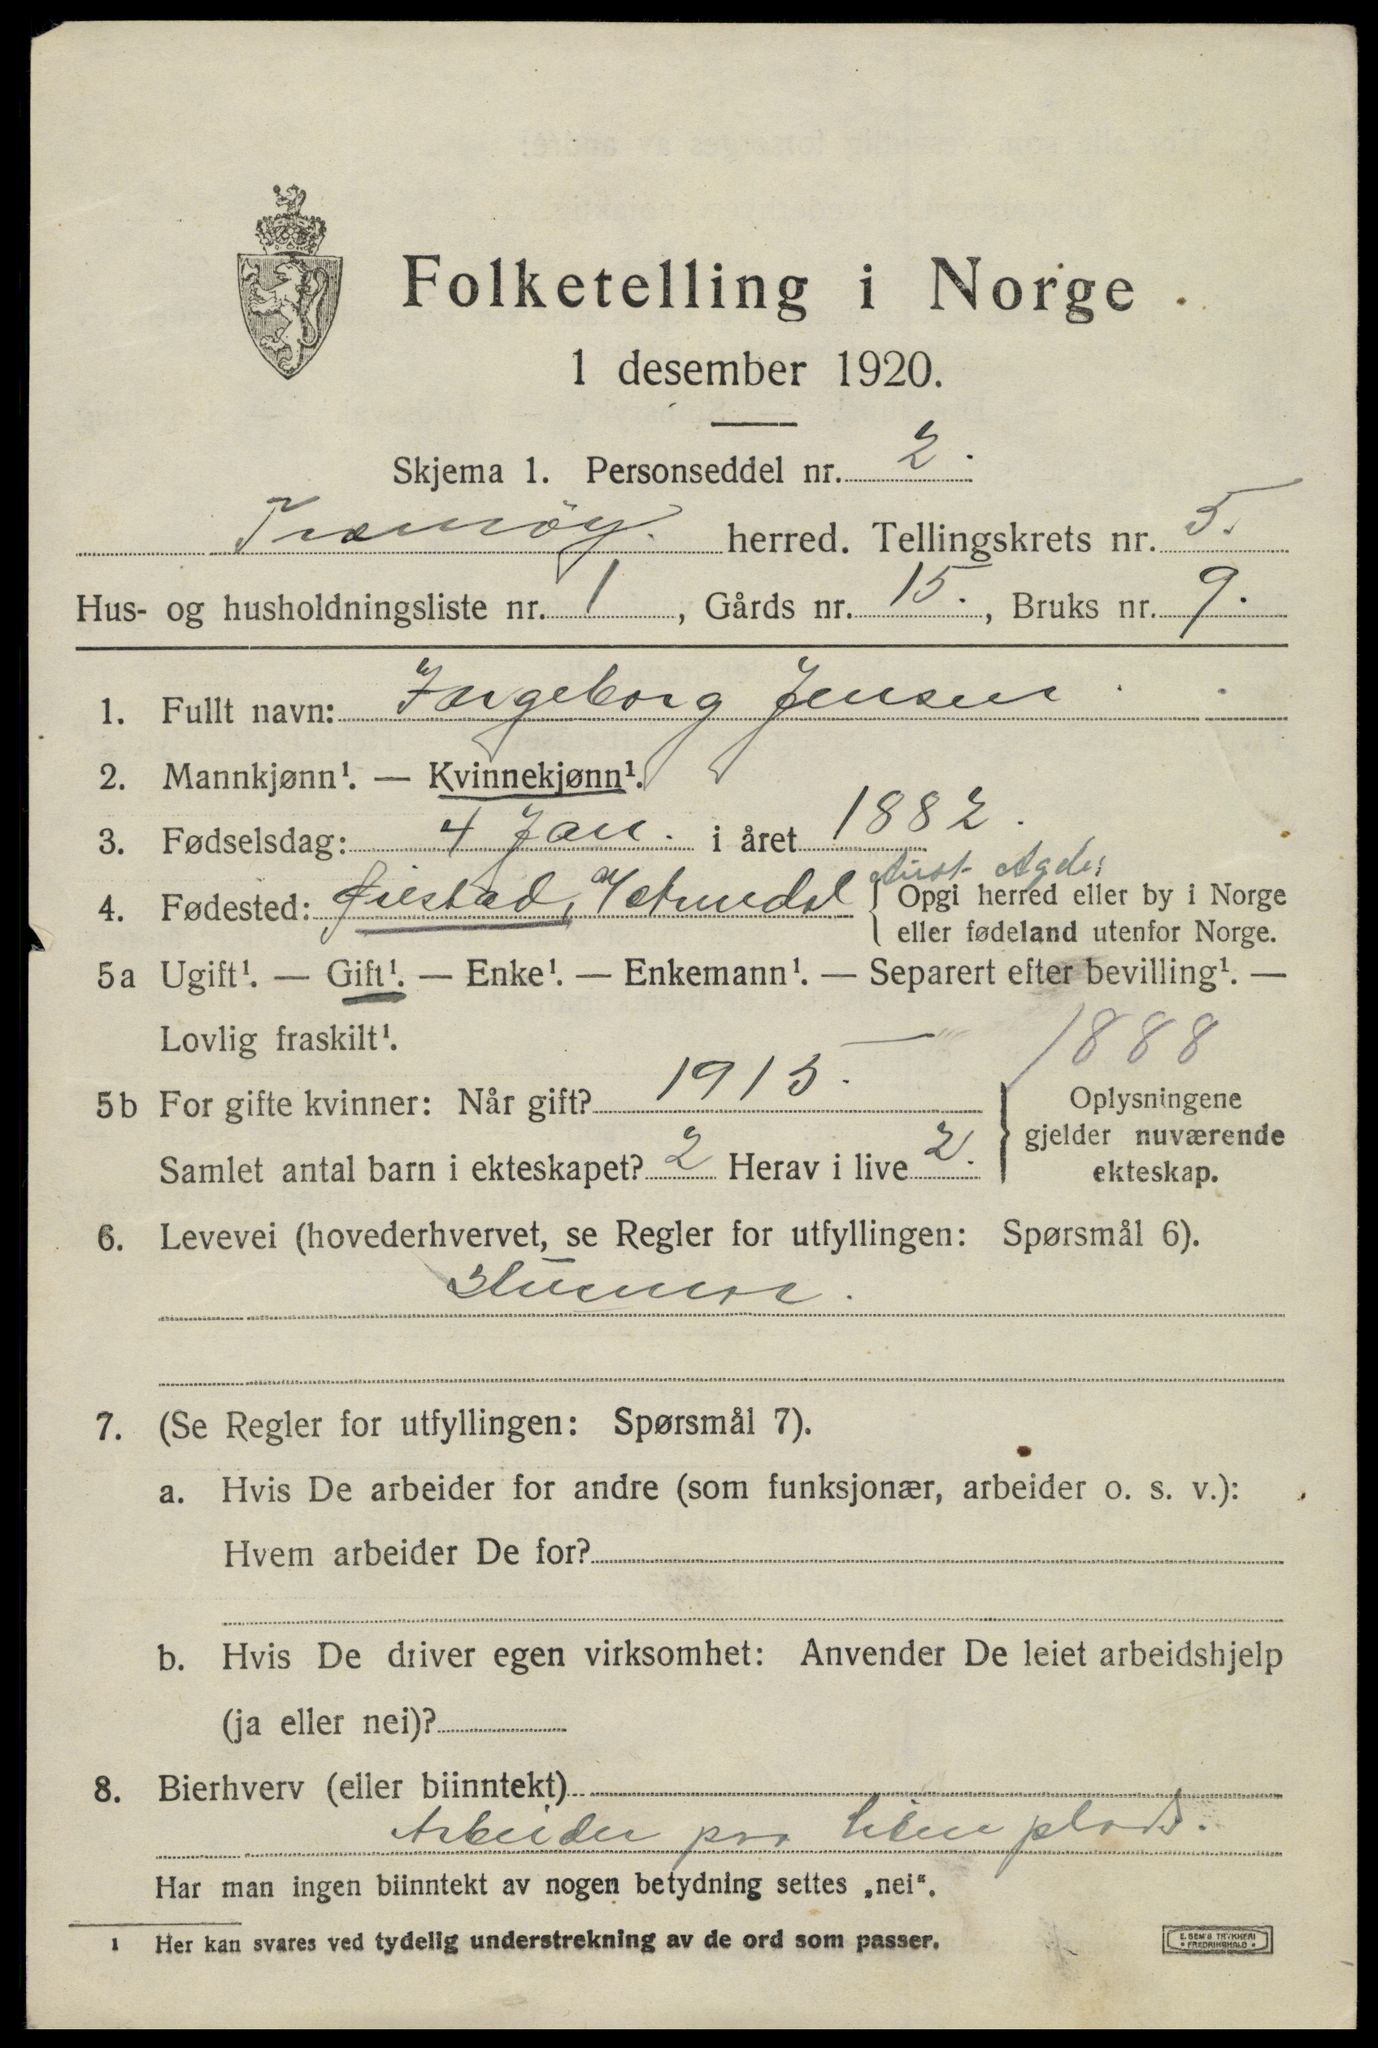 Folketelling i Norge
1 desember 1920.
Skjema 1. Personseddel nr. 2.
Tromöy. herred. Tellingskrets nr. 5.
Hus- og husholdningsliste nr. 1, Gårds nr. 15., Bruks nr. 9.
1. Fullt navn: Ingeborg Jensen
2. Mannkjønn¹. — Kvinnekjønn¹.
3. Fødselsdag: 4 Jan. i året 1882.
Aust-Agder
4. Fødested: Øiestad, Opgi herred eller by i Norge
eller fødeland utenfor Norge.
5a Ugift¹. — Gift¹. — Enke¹. — Enkemann¹. — Separert efter bevilling¹. —
Lovlig fraskilt¹.
1888
5b For gifte kvinner: Når gift? 1915. Oplysningene
gjelder nuværende
Samlet antal barn i ekteskapet? 2 Herav i live 2. ekteskap.
6. Levevei (hovederhvervet, se Regler for utfyllingen: Spørsmål 6).
7. (Se Regler for utfyllingen: Spørsmål 7).
a. Hvis De arbeider for andre (som funksjonær, arbeider o. s. v.):
Hvem arbeider De for?
b. Hvis De driver egen virksomhet: Anvender De leiet arbeidshjelp
(ja eller nei)?
8. Bierhverv (eller biinntekt)
Arbeider paa plads.
Har man ingen biinntekt av nogen betydning settes „nei".
1 Her kan svares ved tydelig understrekning av de ord som passer.
E. SEM'S TRYKKERI
FREDRIKSHALD